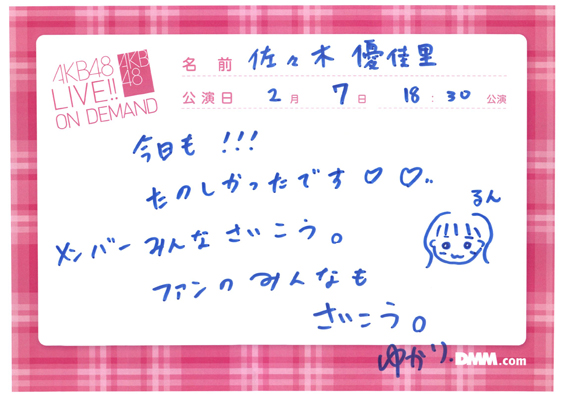 AKB48
LIVE!!
ON DEMAND
AKB
48
名前 佐々木 優佳里
公演日 2月 7日 18:30 公演
今日も!!!
たのしかったです♡ ♡..
るん
メンバーみんなさいこう。
ファンのみんなも
さいこう。
ゆかり.
DMM.com